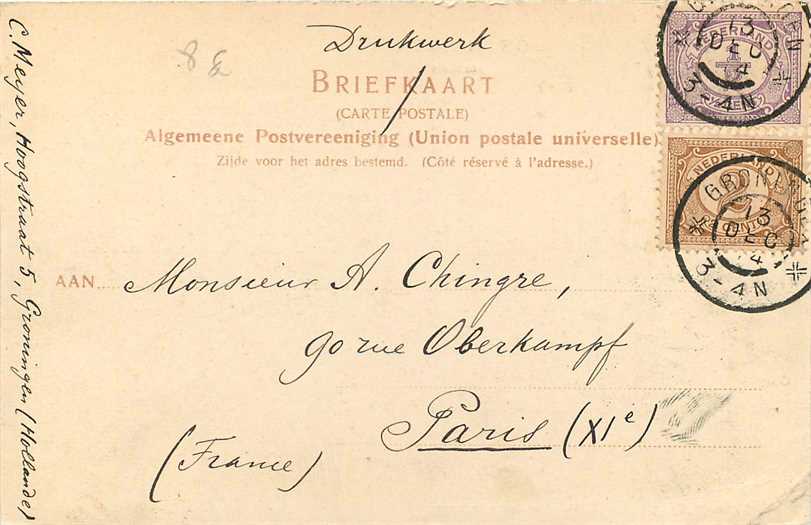 Drukwerk
BRIEFKAART
(CARTE POSTALE)
Algemeene Postvereeniging (Union postale universelle).
Zijde voor het adres bestemd. (Côté réservé à l'adresse.)
AAN Monsieur A. Chingre,
90 rue Oberkampf
Paris (XIe)
(France)
C. Meyer, Hoogstraat 5, Groningen (Hollande)
NEDERLAND
13
DEC
4
3-4N
NEDERLAND
GRONINGEN
13
DEC
4
3-4N